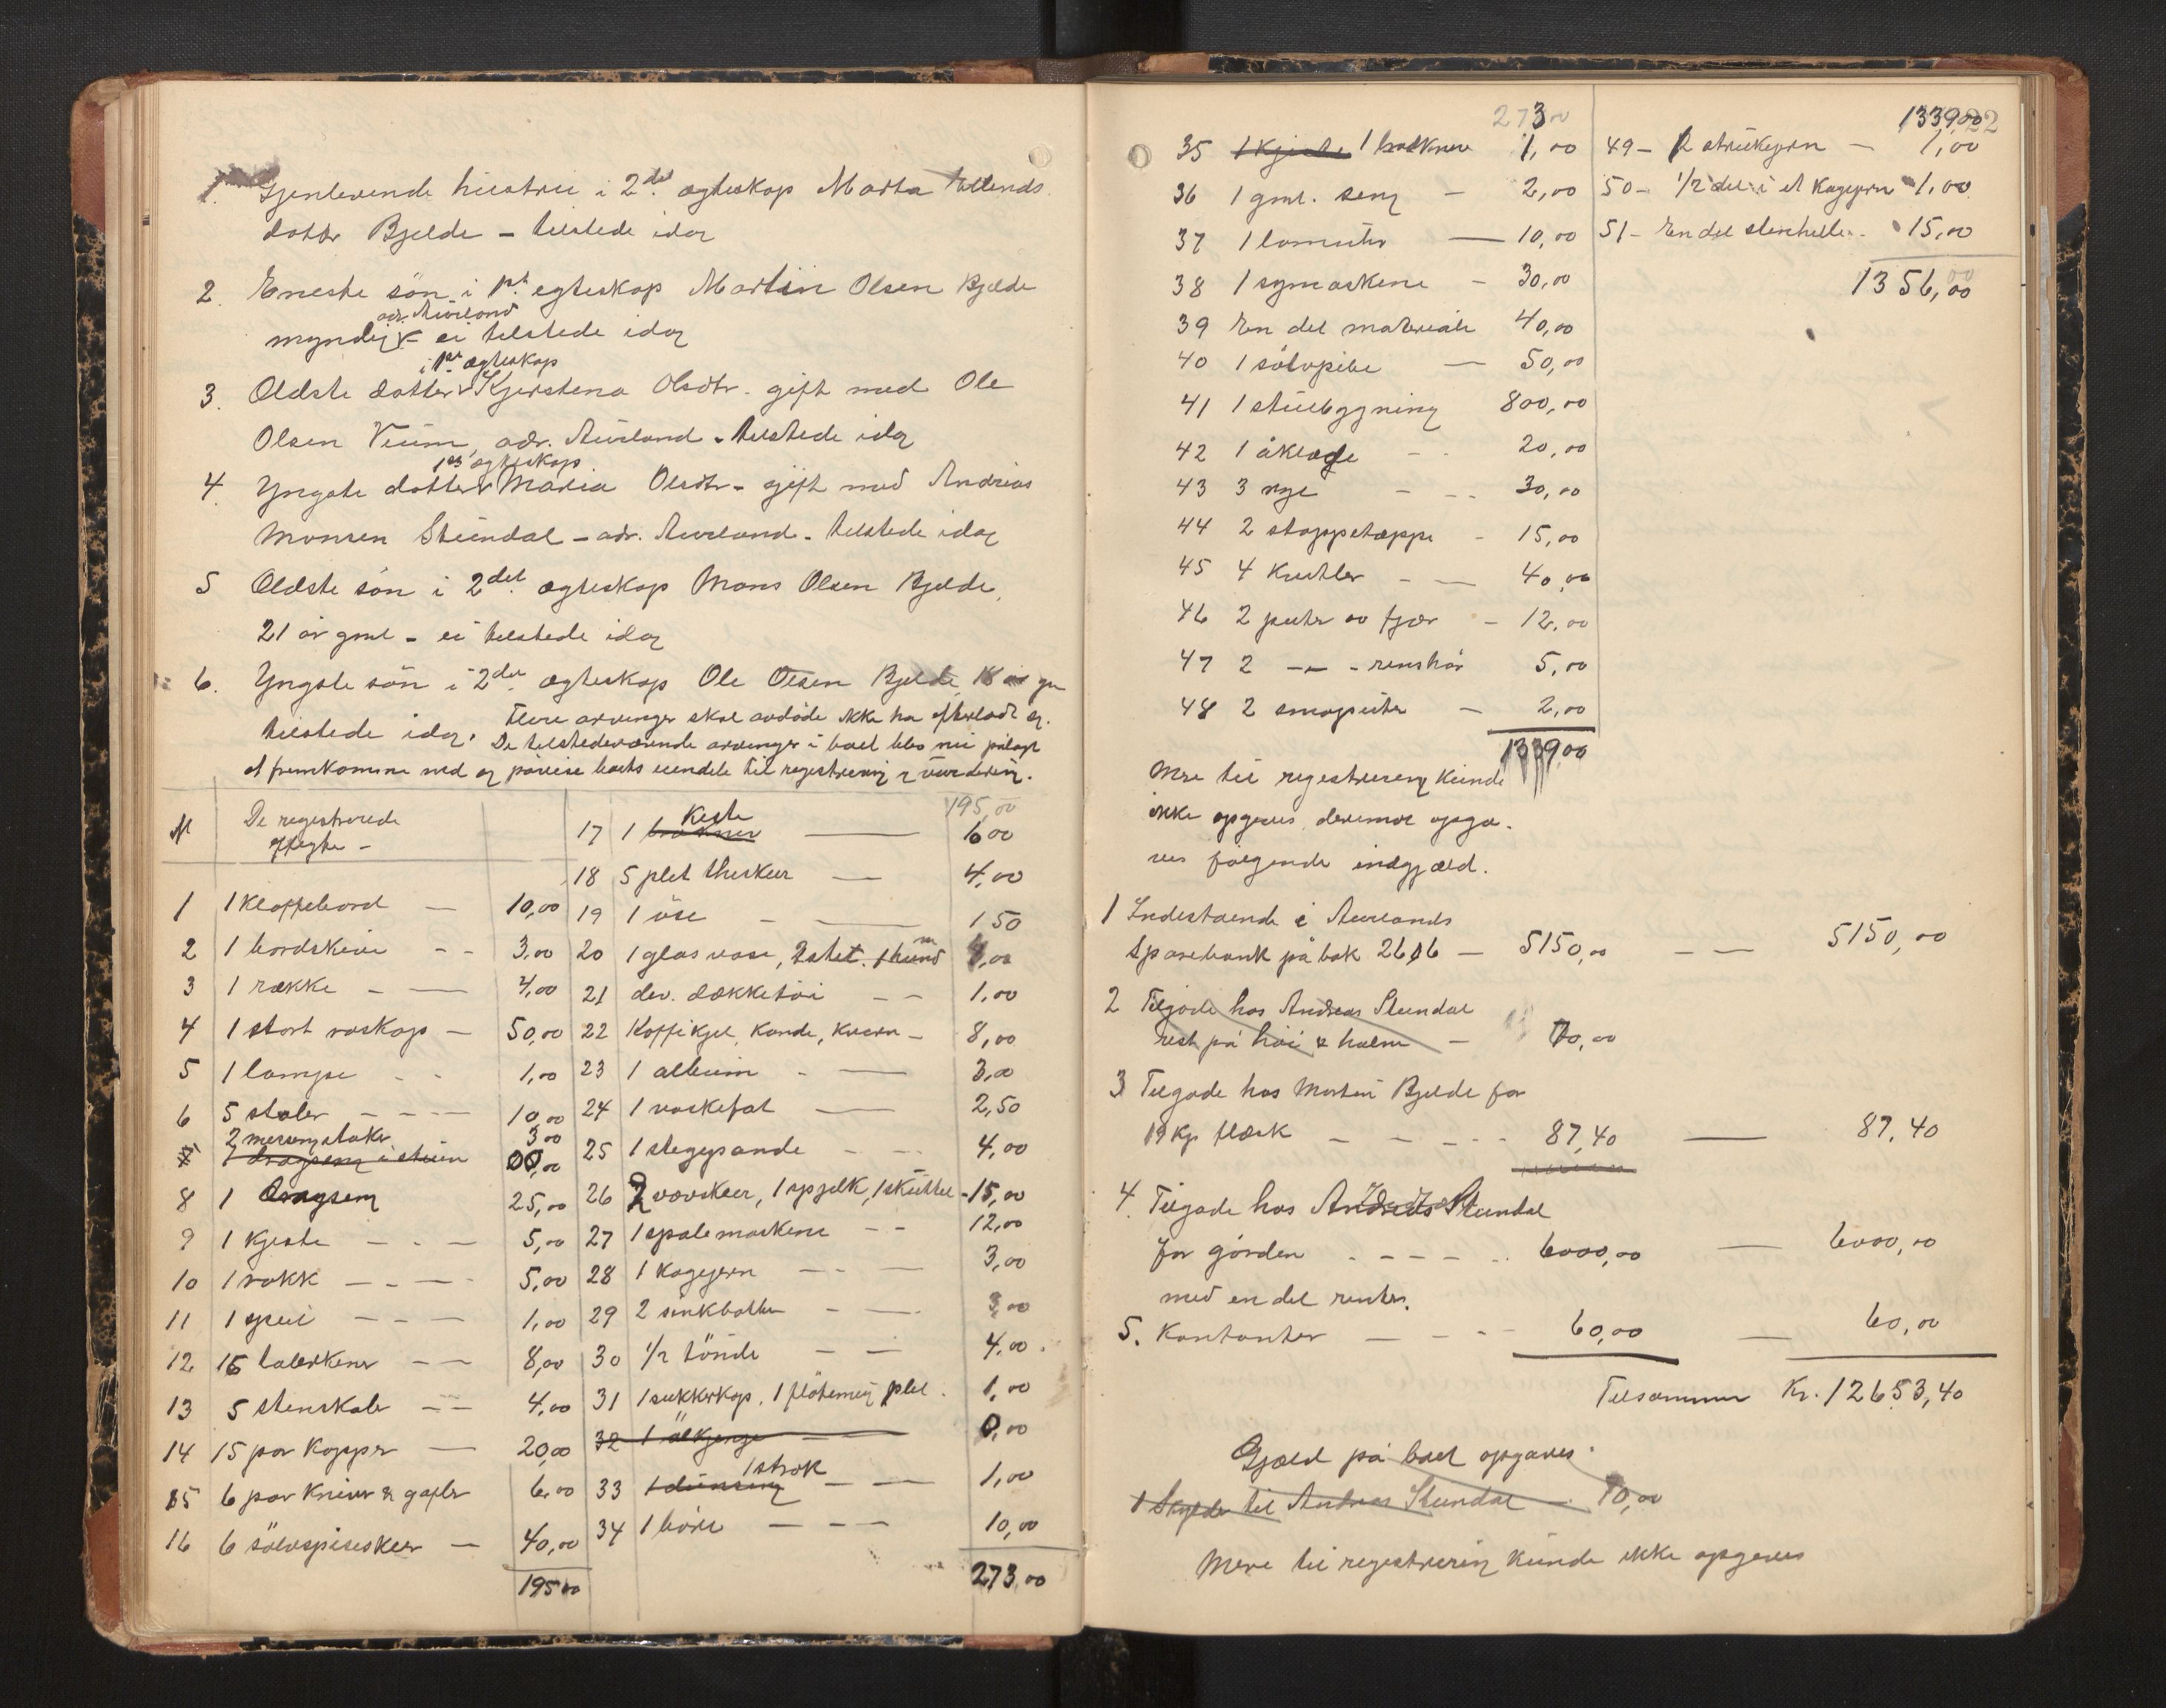 1. Gjenlevende hustru i 2det ægteskap Marta Ellends
dotter Bjelde – tilstede idag
2. Eneste sön i 1ste egteskap Martin Olsen Bjelde
adr. Aurland
myndig – ei tilstede idag
i 1ste ægteskap
3. Ældste datter Kjerstena Olsdtr. gift med Ole
Olsen Veum, adr. Aurland – tilstede idag
1ste ægteskap
4. Yngste datter Maria Olsdtr – gift med Andreas
Monsen Stundal – adr. Aurland – tilstede idag
5 Ældste sön i 2det ægteskap Mons Olsen Bjelde,
21 år gml – ei tilstede idag
6. Yngste sön i 2det ægteskap Ole Olsen Bjelde, 18 år gm
tilstede idag. Flere arvinger skal avdöde ikke ha efterladt sig.
De tilstedeværende arvinger i boet blev nu pålagt
at fremkomme med og påvise boets eiendele til registrering & vurdering.
№ De registrerede
1 1 Klaffebord – 10,00
2 1 bordskive – – 3,00
3 1 række – – 4,00
4 1 stort vaskap – 50,00
5 1 lampe – – 1,00
6 5 stoler – – – 10,00
2 messingstaker 3,00
7 1 dragseng i stuen 00,00
8 1 dragseng 25,00
9 1 Kjeste – – – 5,00
10 1 rokk – – – 5,00
11 1 speil – – – 1,00
12 15 talerkener – – 8,00
13 5 stenskaler – – 4,00
14 15 par Kopper – 20,00
15 6 par Kniver & gafler 6,00
16 6 sölvspiseskeer – 40,00
195,00
195,00
17 1 Keste – 6,00
18 5 plet theskeer – 4,00
19 1 öse – – 1,50
20 1 glas vase, 2 stet. 1 hund 4,00
21 div. dækketöi – – 1,00
22 Kaffikjel, Kande, Kvern – 8,00
23 1 album – – 3,00
24 1 vaskefat – 2,50
25 1 stegepande – – 4,00
26 2 vævskeer, 1 spjelk, 1 skuttel – 15,00
27 1 spolemaskine – – 12,00
28 1 Kagejern – – 3,00
29 2 sinkbotter – – 3,00
30 1/2 tönde – – 4,00
31 1 sukkerkop, 1 flötemug plet. 1,00
32 1 ölkjenge – 0,00
1 strok
33 – – 1,00
34 1 böre – – – 10,00
273,00
273,00
35 1 Kjeste 1 1,00
36 1 gml. seng – 2,00
37 1 lomeuhr – 10,00
38 1 symaskine – 30,00
39 En del materiale 40,00
40 1 sölvpibe – 50,00
41 1 stuebygning 800,00
42 1 åklæde – – 20,00
43 3 rye – – – 30,00
44 2 stoppetæppe – 15,00
45 4 – – 40,00
46 2 puter av fjær – 12,00
47 2 – „ – renshår 5,00
48 2 småputer – 2,00
1339,00
1339,00 22
49 – 2 strükejern – 1,00
50 – 1/2 del i et Kagejern 1,00
51 – En del stenheller – 15,00
1356,00
Mere til registrering Kunde
ikke opgives, derimot opga-
ves fölgende indgjæld.
1 Indestaende i Aurlands
Sparebank på bok 2616 – 5150,00 – – 5150,00
2 Tilgode hos Andreas Stundal
rest på höi & halm – 70,00
3 Tilgode hos Martin Bjelde for
19 Kg flæsk – – – – 87,40 – 87,40
4. Tilgode hos Andreas Stundal
for gården – – – – 6000,00 – 6000,00
med en del renter.
5. Kontanter – – – – 60,00 – 60,00
Tilsammen Kr. 12653,40
Gjæld på boet opgaves:
1 Skylder til Andreas Stundal – 70,00
Mere til registrering Kunde ikke opgives